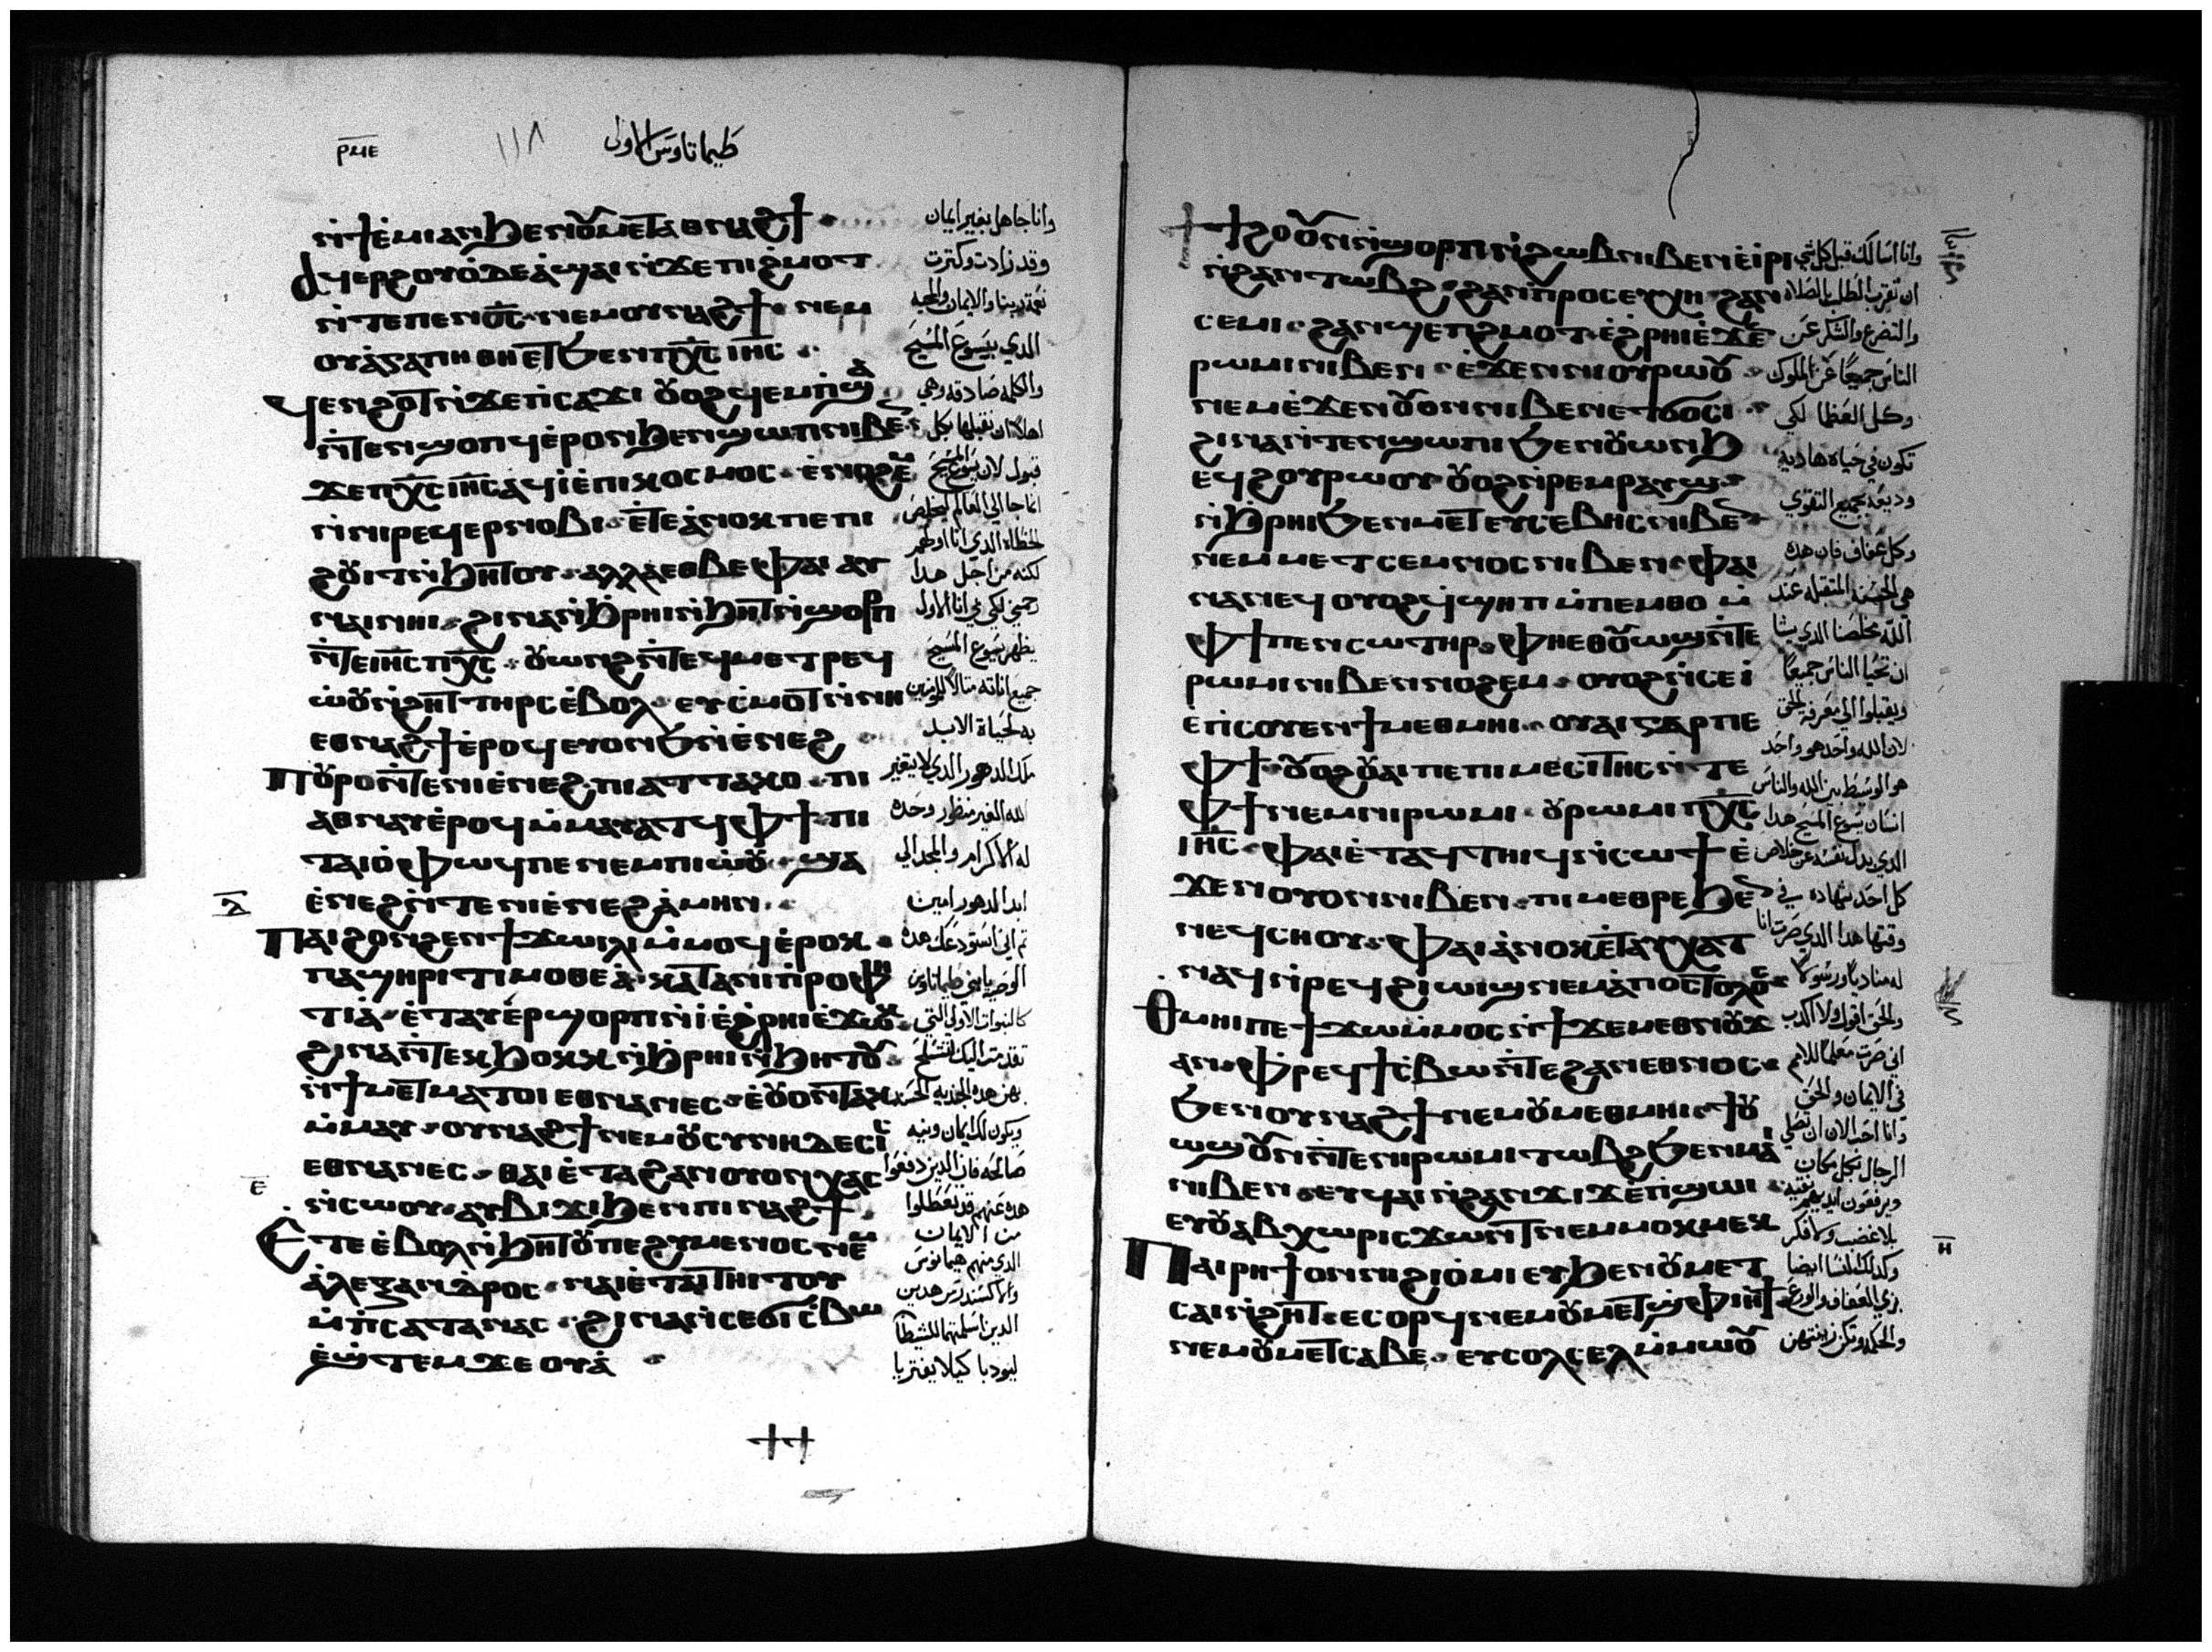 ⲣⲙⲉ
١١٨
طيماتاوس الاولى
ⲛϯⲉⲙⲓ ⲁⲛ ϧⲉⲛ ⲟⲩⲙⲉⲧⲁⲑⲛⲁϩϯ
ⲁϥⲉⲣϩⲟⲩⲟ ⲇⲉ ⲁϣⲁⲓ ⲛϫⲉ ⲡⲓϩⲙⲟⲧ
ⲛⲧⲉ ⲡⲉⲛⲟ̅ⲥ̅ ⲛⲉⲙ ⲟⲩⲛⲁϩϯ ⲛⲉⲙ
ⲟⲩⲁⲅⲁⲡⲏ ⲑⲏⲉⲧϧⲉⲛ ⲡⲭ̅ⲥ̅ ⲓⲏ̅ⲥ̅
ϥⲉⲛϩⲟⲧ ⲛϫⲉ ⲡⲓⲥⲁϫⲓ ⲟⲩⲟϩ ϥⲉⲙⲡϣⲁ
ⲛⲧⲉⲛϣⲟⲡϥ ⲉⲣⲟⲛ ϧⲉⲛ ϣⲱⲡ ⲛⲓⲃⲉⲛ
ϫⲉ ⲡⲭ̅ⲥ̅ ⲓⲏ̅ⲥ̅ ⲁϥⲓ ⲉⲡⲓⲕⲟⲥⲙⲟⲥ ⲉⲛⲟϩⲉⲙ
ⲛⲛⲓⲣⲉϥⲉⲣⲛⲟⲃⲓ ⲉⲧⲉ ⲁⲛⲟⲕ ⲡⲉ ⲡⲓ
ϩⲟⲩⲓⲧ ⲛϧⲏⲧⲟⲩ ⲁⲗⲗⲁ ⲉⲑⲃⲉ ⲫⲁⲓ ⲁⲩ
ⲛⲁⲓ ⲛⲏⲓ ϩⲓⲛⲁ ⲛϧⲣⲏⲓ ⲛϧⲏⲧ ⲛϣⲟⲣⲡ
ⲛⲧⲉ ⲓⲏ̅ⲥ̅ ⲡⲭ̅ⲥ̅ ⲟⲩⲱⲛϩ ⲛⲧⲉϥⲙⲉⲧⲣⲉϥ
ⲱⲟⲩⲛϩⲏⲧ ⲧⲏⲣⲥ ⲉⲃⲟⲗ ⲉⲩⲥⲙⲟⲧ ⲛⲛⲏ
ⲉⲑⲛⲁϩϯ ⲉⲣⲟϥ ⲉⲩⲱⲛϧ ⲛⲉⲛⲉϩ
ⲡⲟⲩⲣⲟ ⲛⲧⲉ ⲛⲓⲉⲛⲉϩ ⲡⲓⲁⲧⲧⲁⲕⲟ ⲡⲓ
ⲁⲑⲛⲁⲩ ⲉⲣⲟϥ ⲙⲙⲁⲩⲁⲧϥ ⲫϯ ⲡⲓ
ⲧⲁⲓⲟ ⲫⲱϥ ⲡⲉ ⲛⲉⲙ ⲡⲓⲱⲟⲩ ϣⲁ
ⲉⲛⲉϩ ⲛⲧⲉ ⲛⲓⲉⲛⲉϩ ⲁⲙⲏⲛ
ⲡⲁⲓϩⲟⲛϩⲉⲛ ϯⲭⲱⲓⲗⲓ ⲙⲙⲟϥ ⲉⲣⲟⲕ
ⲡⲁϣⲏⲣⲓ ⲧⲓⲙⲟⲑⲉⲁ ⲕⲁⲧⲁ ⲛⲓⲡⲣⲟⲫⲏ
ⲧⲓⲁ ⲉⲧⲁⲩⲉⲣϣⲟⲣⲡ ⲛⲓ ⲉϩⲣⲏⲓ ⲉϫⲱⲕ
ϩⲓⲛⲁ ⲛⲧⲉⲕϧⲟⲕⲕ ⲛϧⲣⲏⲓ ⲛϧⲏⲧⲟⲩ
ⲛϯⲙⲉⲧⲙⲁⲧⲟⲓ ⲉⲑⲛⲁⲛⲉⲥ ⲉⲟⲩⲟⲛⲧⲁⲕ
ⲙⲙⲁⲩ ⲟⲩⲛⲁϩϯ ⲛⲉⲙ ⲟⲩⲥⲩⲛⲏⲇⲉⲥⲓⲥ
ⲉⲑⲛⲁⲛⲉⲥ ⲑⲁⲓ ⲉⲧⲁ ϩⲁⲛⲟⲩⲟⲛ ⲭⲁⲥ
ⲛⲥⲱⲟⲩ ⲁⲩϭⲓϫⲓ ϧⲉⲛ ⲡⲓⲛⲁϩϯ
ⲉⲧⲉ ⲉⲃⲟⲗ ⲛϧⲏⲧⲟⲩ ⲡⲉ ϩⲩⲙⲉⲛⲟⲥ ⲛⲉⲙ
ⲁⲗⲉⲝⲁⲛⲇⲣⲟⲥ ⲛⲁⲓ ⲉⲧⲁⲓⲧⲏⲓⲧⲟⲩ
ⲙⲡⲥⲁⲧⲁⲛⲁⲥ ϩⲓⲛⲁ ⲛⲥⲉϭⲓⲥⲃⲱ
ⲉϣⲧⲉⲙϫⲉⲟⲩⲁ
وانا جاهل بغير ايمان
وقد زادت وكثرت
نعمة ربنا والايمان والمحبه
الذي بيسوع المسيح
والكلمه صادقه وهي
اهلا ان نقبلها بكل
قبول لان يسوع المسيح
انما جا الي العالم ليخلص
الخطاه الذي انا اولهم
لكنه من اجل هذا
رحمني لكي في انا الاول
يظهر يسوع المسيح
جميع اناته مثالا للمومنين
به لحياة الابد
ملك الدهور الذي لا يتغير
الله الغير منظور وحده
له الاكرام والمجد الي
ابد الدهور امين
ⲇ
ⲉ
ϯϯϩⲟ ⲟⲩⲛ ⲛϣⲟⲣⲡ ⲛϩⲱⲃ ⲛⲓⲃⲉⲛ ⲉⲓⲣⲓ
ⲛϩⲁⲛⲧⲱⲃϩ ϩⲁⲛⲡⲣⲟⲥⲉⲩⲭⲏ ϩⲁⲛ
ⲥⲉⲙⲓ ϩⲁⲛϣⲉⲡϩⲙⲟⲧ ⲉϩⲣⲏⲓ ⲉϫⲉⲛ
ⲣⲱⲙⲓ ⲛⲓⲃⲉⲛ ⲉϫⲉⲛ ⲛⲓⲟⲩⲣⲱⲟⲩ
ⲛⲉⲙ ⲉϫⲉⲛ ⲟⲩⲟⲛ ⲛⲓⲃⲉⲛ ⲉⲧϭⲟⲥⲓ
ϩⲓⲛⲁ ⲛⲧⲉⲛϣⲱⲡⲓ ϧⲉⲛ ⲟⲩⲱⲛϧ
ⲉϥϩⲟⲩⲣⲱⲟⲩ ⲟⲩⲟϩ ⲛⲣⲉⲙⲣⲁⲩϣ
ⲛϧⲣⲏⲓ ϧⲉⲛ ⲙⲉⲧⲉⲩⲥⲉⲃⲏⲥ ⲛⲓⲃⲉⲛ
ⲛⲉⲙ ⲙⲉⲧⲥⲉⲙⲛⲟⲥ ⲛⲓⲃⲉⲛ ⲫⲁⲓ
ⲛⲁⲛⲉϥ ⲟⲩⲟϩ ϥϣⲏⲡ ⲙⲡⲉⲙⲑⲟ ⲙ
ⲫϯ ⲡⲉⲛⲥⲱⲧⲏⲣ ⲫⲏⲉⲑⲟⲩⲱϣ ⲛⲧⲉ
ⲣⲱⲙⲓ ⲛⲓⲃⲉⲛ ⲛⲟϩⲉⲙ ⲟⲩⲟϩ ⲛⲥⲉⲓ
ⲉⲡⲥⲟⲩⲉⲛ ϯⲙⲉⲑⲙⲏⲓ ⲟⲩⲁⲓ ⲅⲁⲣ ⲡⲉ
ⲫϯ ⲟⲩⲟϩ ⲟⲩⲁⲓ ⲡⲉ ⲡⲓⲙⲉⲥⲓⲧⲏⲥ ⲛⲧⲉ
ⲫϯ ⲛⲉⲙ ⲛⲓⲣⲱⲙⲓ ⲟⲩⲣⲱⲙⲓ ⲡⲭ̅ⲥ̅
ⲓⲏ̅ⲥ̅ ⲫⲁⲓ ⲉⲧⲁϥⲧⲏⲓϥ ⲛⲥⲱϯ ⲉ
ϫⲉⲛ ⲟⲩⲟⲛ ⲛⲓⲃⲉⲛ ⲡⲓⲙⲉⲑⲣⲉ ϧⲉⲛ
ⲛⲉϥⲥⲏⲟⲩ ⲫⲁⲓ ⲁⲛⲟⲕ ⲉⲧⲁⲩⲭⲁⲧ
ⲛⲁϥ ⲛⲣⲉϥϩⲓⲱⲓϣ ⲛⲉⲙ ⲁⲡⲟⲥⲧⲟⲗⲟⲥ
ⲑⲙⲏⲓ ⲡⲉ ϯϫⲱ ⲙⲙⲟⲥ ⲛϯϫⲉⲙⲉⲑⲛⲟⲩϫ
ⲁⲛ ⲫⲣⲉϥϯⲥⲃⲱ ⲛⲧⲉ ϩⲁⲛⲉⲑⲛⲟⲥ
ϧⲉⲛ ⲟⲩⲛⲁϩϯ ⲛⲉⲙ ⲟⲩⲙⲉⲑⲙⲏⲓ ϯⲟⲩ
ⲱϣ ⲟⲩⲛ ⲛⲧⲉ ⲛⲓⲣⲱⲙⲓ ⲧⲱⲃϩ ϧⲉⲛ ⲙⲁⲓ
ⲛⲓⲃⲉⲛ ⲉⲩϥⲁⲓ ⲛϩⲁⲛϫⲓϫ ⲉⲡϣⲱⲓ
ⲉⲩⲟⲩⲁⲃ ⲭⲱⲣⲓⲥ ϫⲱⲛⲧ ⲛⲉⲙ ⲙⲟⲕⲙⲉⲕ
ⲡⲁⲓⲣⲏϯ ⲟⲛ ⲛⲓϩⲓⲟⲙⲓ ⲉⲩϧⲉⲛ ⲟⲩⲙⲉⲧ
ⲥⲁⲓⲛϩⲏⲧ ⲉⲥⲟⲣϥ ⲛⲉⲙ ⲟⲩⲙⲉⲧϣⲫⲓⲏϯ
ⲛⲉⲙ ⲟⲩⲙⲉⲧⲥⲁⲃⲉ ⲉⲩⲥⲟⲗⲥⲉⲗ ⲙⲙⲱⲟⲩ
وانا اسالك قبل كل شي
ان تقرب الطلب بالصلاه
والتضرع والشكر عن
الناس جميعا عن الملوك
وكل العظما لكي
تكون في حياه هاديه
وديعه بجميع التقوي
وكل عفاف فان هذه
هي الحسنه المتقبله عند
الله مخلصنا الذي يشا
ان تحيا الناس جميعا
ويقبلوا الي معرفة الحق
لان الله واحد هو واحد
هو الوسط بين الله والناس
انسان يسوع المسيح هذا
الذي بذل نفسه عن خلاص
كل احد شهاده في
وقتها هذا الذي صرت انا
له مناديا ورسولا
والحق اقول ولا اكذب
اني صرت معلما للامم
في الايمان والحق
وانا احب الان ان تصلي
الرجال بكل مكان
بلا غضب ولا فكر
وكذلك النسا ايضا
ⲏ